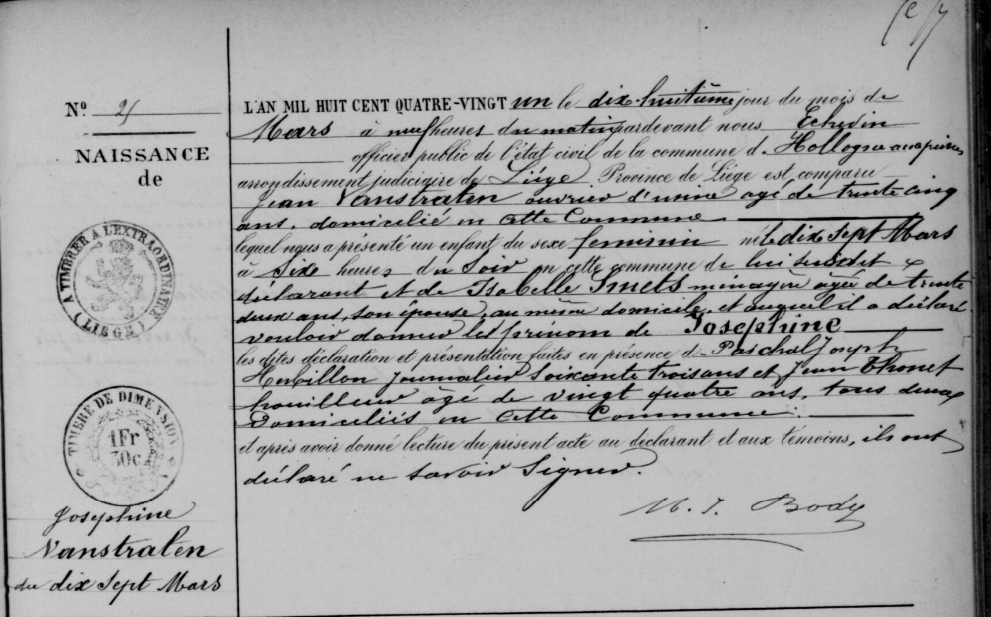 Nº 21
NAISSANCE
de
A TIMBRER A L'EXTRAORDINAIRE
(LIEGE)
TIMBRE DE DIME
1Fr
30c
Josephine
Vanstralen
du dix Sept Mars
L'AN MIL HUIT CENT QUATRE-VINGT un le dix-huitième jour du mois de
Mars à neuf heures du matin pardevant nous Echevin
officier public de l'état civil de la commune d. Hollogne aux pierres
arrondissement judiciaire de Liége Province de Liége est comparu
Jean Vanstralen ouvrier d'usine agé de trente cinq
ans, domicilié en cette Commune
lequel nous a présenté un enfant du sexe feminin né le dix Sept Mars
à Six heures du Soir en cette commune de lui susdit
déclarant et de Isabelle Smets ménagère agée de trente
deux ans, son épouse, au même domicile, et auquel il a déclaré
vouloir donner le prénom de Josephine
les dites déclaration et présentation faites en présence d. Paschal Joseph
Herbillon Journalier Soixante trois ans et Jean Thonet
houilleur agé de vingt quatre ans, tous deux
Domiciliés en cette Commune
et après avoir donné lecture du présent acte au déclarant et aux témoins, ils ont
déclaré ne savoir Signer.
M. J. Body